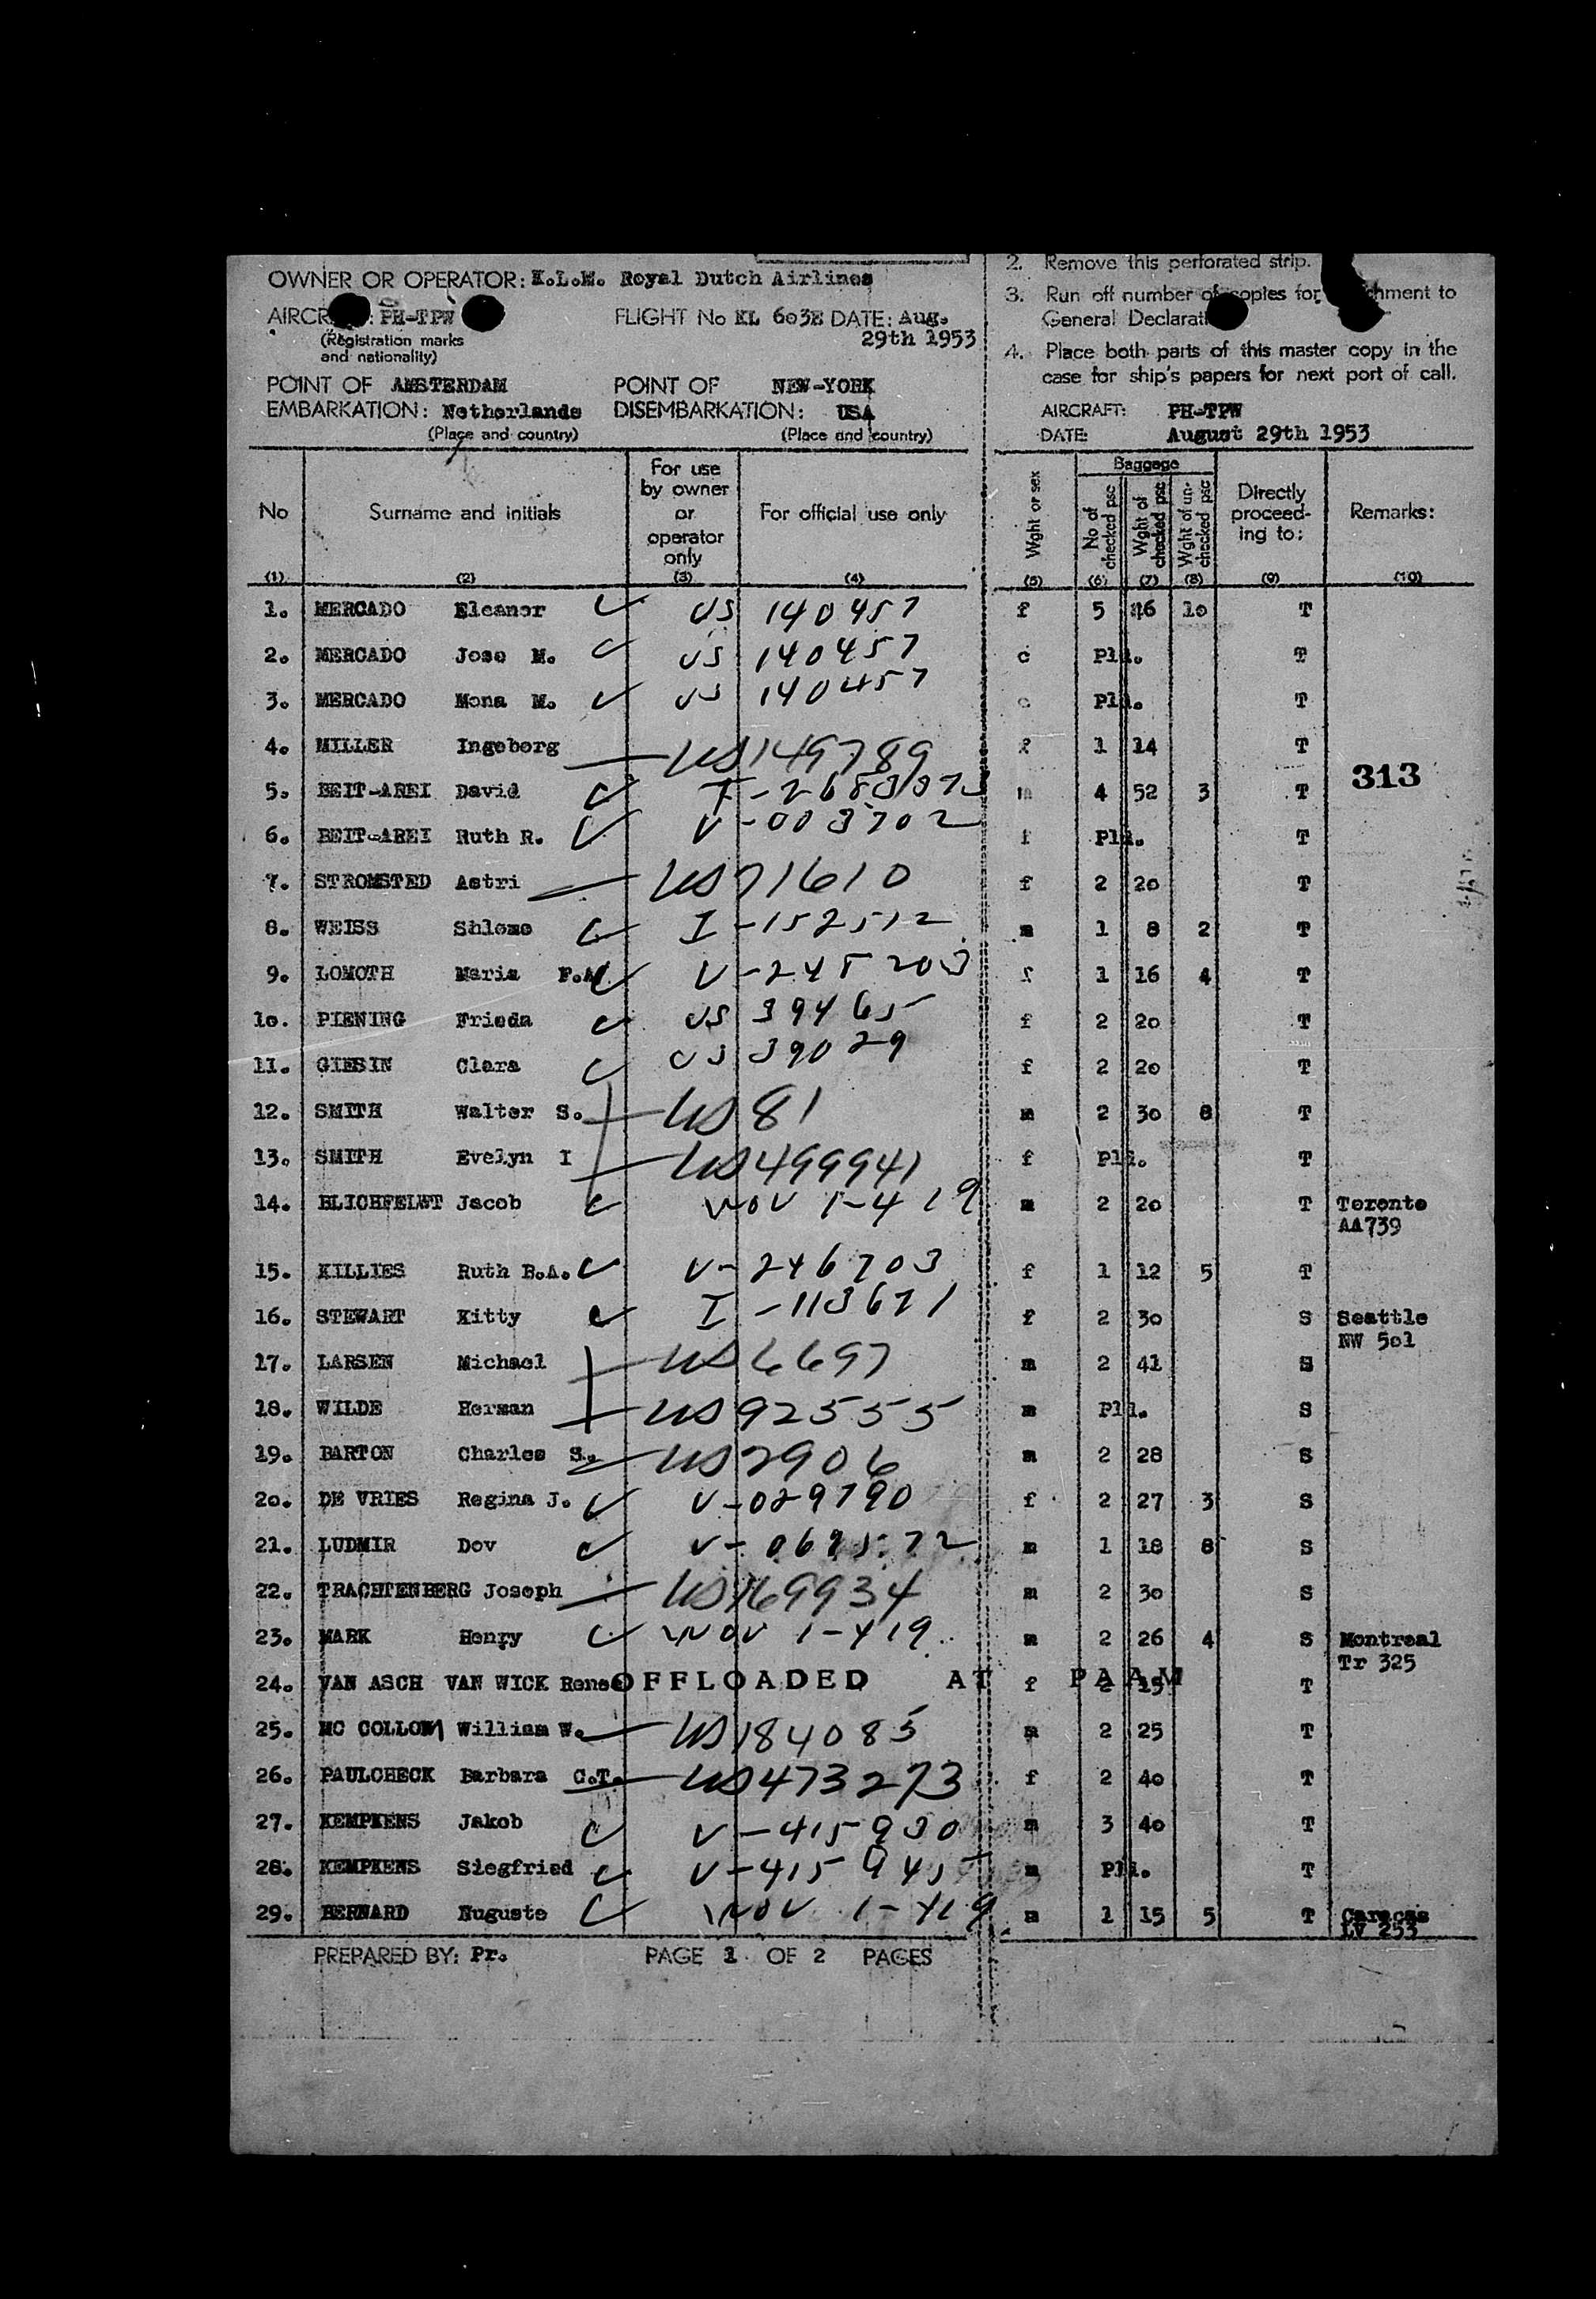 OWNER OR OPERATOR: K.L.M. Royal Dutch Airlines
PH-TPW FLIGHT No KL 603E DATE: Aug. 29th 1953
(Registration marks and nationality)
POINT OF EMBARKATION: AMSTERDAM Netherlands
(Place and country)
POINT OF DISEMBARKATION: NEW-YORK USA
(Place and country)
2. Remove this perforated strip.
3. Run off number of copies for
General
4. Place both parts of this master copy in the
case for ship's papers for next port of call.
AIRCRAFT: PH-TPW
DATE: August 29th 1953
No (1) Surname and initials (2) For use by owner or operator only (3) For official use only (4) Wght or sex (5) Baggage No of checked psc (6) Wght of checked psc (7) Wght of un-checked psc (8) Directly proceed-ing to: (9) Remarks: (10)
1. MERCADO Eleanor US 140457 f 5 10 T
2. MERCADO Jose M. US 140457 c Pll. T
3. MERCADO Mona M. US 140457 c Pll. T
4. MILLER Ingeborg US 149789 f 1 14 T
313
5. BEIT-AREI David m 4 52 3 T
6. BEIT-AREI Ruth R. V-003702 f Pll. T
7. STROMSTED Astri US 71610 f 2 20 T
8. WEISS Shlomo I-152512 m 1 8 2 T
9. LOMOTH Maria F.A. f 1 16 4 T
10. PIENING Frieda US 39465 f 2 20 T
11. GIESIN Clara US 39029 f 2 20 T
12. SMITH Walter S. US 81 m 2 30 8 T
13. SMITH Evelyn I US 499941 f Pll. T
14. BLICHFELDT Jacob NOV 1-419 m 2 20 T Toronto AA739
15. KILLIES Ruth B.A. V-246703 f 1 12 5 T
16. STEWART Kitty I-113671 f 2 30 S Seattle NW 501
17. LARSEN Michael US 6697 m 2 41 S
18. WILDE Herman US 92555 m Pll. S
19. BARTON Charles S. US 2906 m 2 28 S
20. DE VRIES Regina J. V-029790 f 2 27 3 S
21. LUDMIR Dov m 1 18 8 S
22. TRACHTENBERG Joseph US 169934 m 2 30 S
23. MARK Henry NOV 1-419 m 2 26 4 S Montreal Tr 325
24. VAN ASCH VAN WICK Renee OFFLOADED AT PAAM f 2 15 T
25. MC COLLOM William W. US 184085 m 2 25 T
26. PAULCHECK Barbara C.T. US 473273 f 2 40 T
27. KEMPKENS Jakob V-415930 m 3 40 T
28. KEMPKENS Siegfried V-415945 m Pll. T
29. BERNARD Nuguste NOV 1-419 m 1 15 5 T Caracas LV 253
PREPARED BY: Pr. PAGE 1 OF 2 PAGES